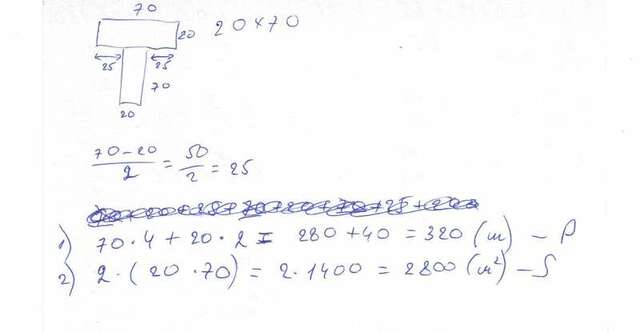 70
20 x 70
20
25 25
70
20
70 - 20 / 2 = 50 / 2 = 25
1) 70 · 4 + 20 · 2 = 280 + 40 = 320 (м) - P
2) 2 · (20 · 70) = 2 · 1400 = 2800 (м²) - S